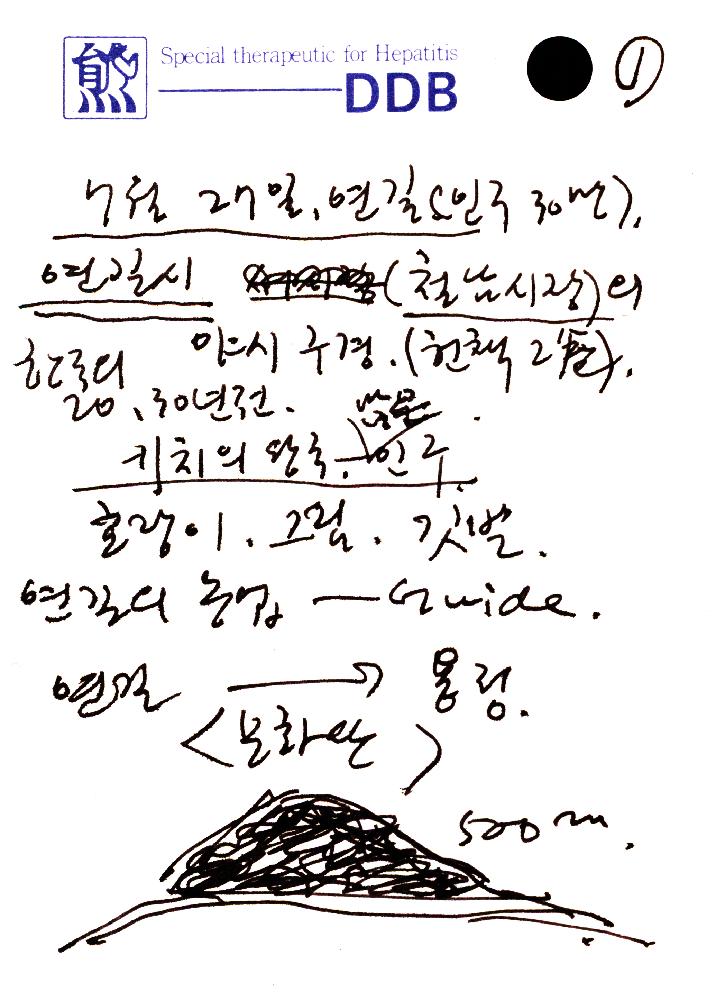 熊
Special therapeutic for Hepatitis
DDB
①
7월 27일, 연길(인구 30만).
연길시 (철남시장)의
한국의 야시 구경. (헌책 2병).
20, 30년전.
키치의 왕국.
호랑이. 그림. 깃발.
연길의 농업 — Guide.
연길 → 용정.
<모화산>
500m.